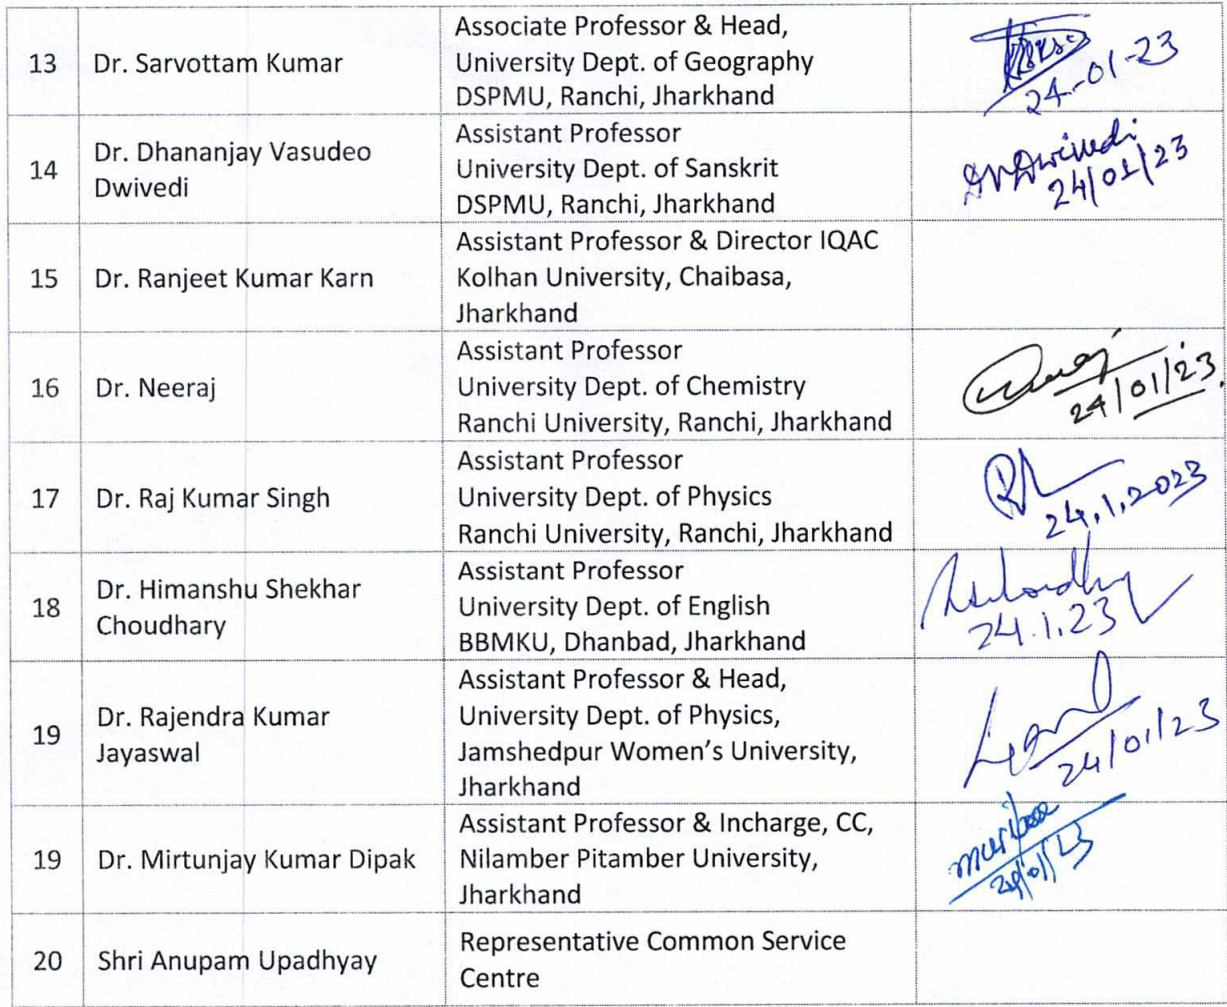 13
Dr. Sarvottam Kumar
Associate Professor & Head,
University Dept. of Geography
DSPMU, Ranchi, Jharkhand
24-01-23
14
Dr. Dhananjay Vasudeo
Dwivedi
Assistant Professor
University Dept. of Sanskrit
DSPMU, Ranchi, Jharkhand
DVDwivedi
24/01/23
15
Dr. Ranjeet Kumar Karn
Assistant Professor & Director IQAC
Kolhan University, Chaibasa,
Jharkhand
16
Dr. Neeraj
Assistant Professor
University Dept. of Chemistry
Ranchi University, Ranchi, Jharkhand
24/01/23.
17
Dr. Raj Kumar Singh
Assistant Professor
University Dept. of Physics
Ranchi University, Ranchi, Jharkhand
24.1.2023
18
Dr. Himanshu Shekhar
Choudhary
Assistant Professor
University Dept. of English
BBMKU, Dhanbad, Jharkhand
24.1.23
19
Dr. Rajendra Kumar
Jayaswal
Assistant Professor & Head,
University Dept. of Physics,
Jamshedpur Women's University,
Jharkhand
24/01/23
19
Dr. Mirtunjay Kumar Dipak
Assistant Professor & Incharge, CC,
Nilamber Pitamber University,
Jharkhand
24/01/23
20
Shri Anupam Upadhyay
Representative Common Service
Centre